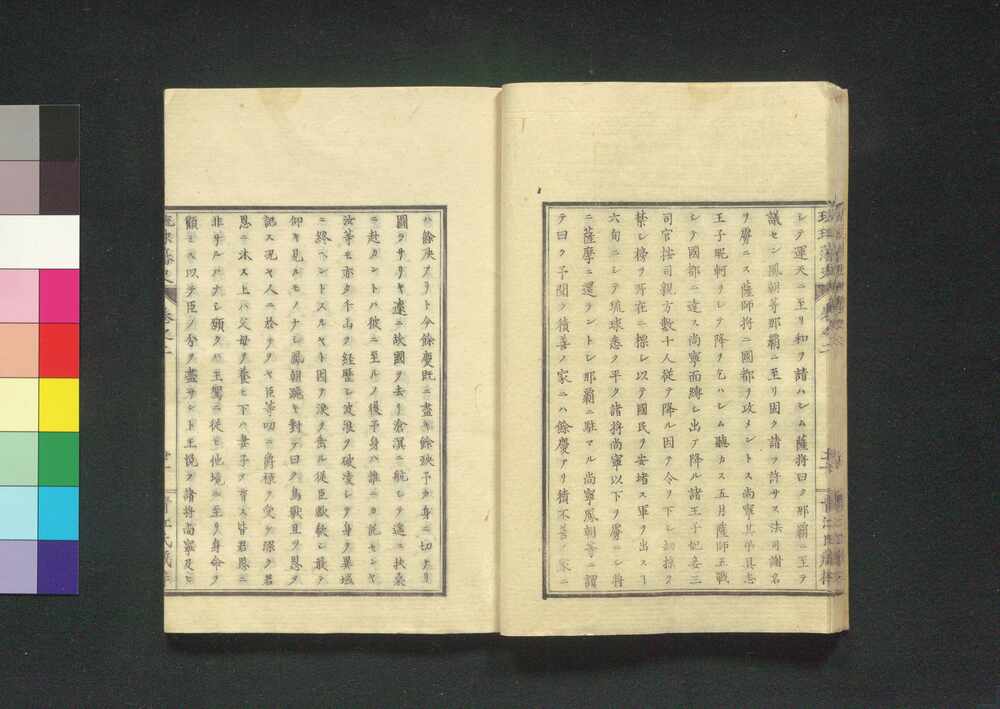 シテ運天ニ至リ和ヲ請ハシム薩将曰ク那覇ニ至テ
議セン鳳朝等那覇ニ至リ固ク請ヲ許サス法司謝名
ヲ虜ニス薩師将ニ國都ヲ攻メントス尚寧其弟具志
王子朝軻ヲシテ降ヲ乞ハシム聴カス五月薩師五戦
シテ國都ニ達ス尚寧面縛シ出テ降ル諸王子妃妾三
司官按司親方數十人従テ降ル因テ令ヲ下シ劫掠ヲ
禁シ榜ヲ所在ニ掲シ以テ國民ヲ安堵ス軍ヲ出スヿ
六旬ニシテ琉球悉ク平ク諸将尚寧以下ヲ虜ニシ将
ニ薩摩ニ還ラントシ那覇ニ駐マル尚寧鳳朝等ニ謂
テ曰ク予聞ク積善ノ家ニハ餘慶アリ積不善ノ家ニ
ハ餘殃アリト今餘慶既ニ盡キ餘殃予カ身ニ切ナリ
圖ラサリキ遽ニ故國ヲ去リ滄溟ニ航シテ遙ニ扶桑
ニ赴カントハ彼ニ至ルノ後予身ハ誰ニカ託センヤ
汝等モ亦タ千山ヲ経歴シ波浪ヲ破凌シテ身ヲ異域
ニ終ヘントスルヤト因テ涙ヲ流ル従臣歔欷シ敢テ
仰キ見ルモノナシ鳳朝跪キ對テ曰ク鳥獣且ヲ恩ヲ
記ス况ヤ人ニ於テヲヤ臣等叨ニ爵禄ヲ受ケ深ク君
恩ニ沐ス上ハ父母ヲ養ヒ下ハ妻子ヲ育ス皆君恩ニ
非サルハナシ願クハ王駕ニ従ヒ他境ニ至リ身命ヲ
顧ミス以テ臣ノ分ヲ盡サント王悦フ諸将尚寧及ヒ